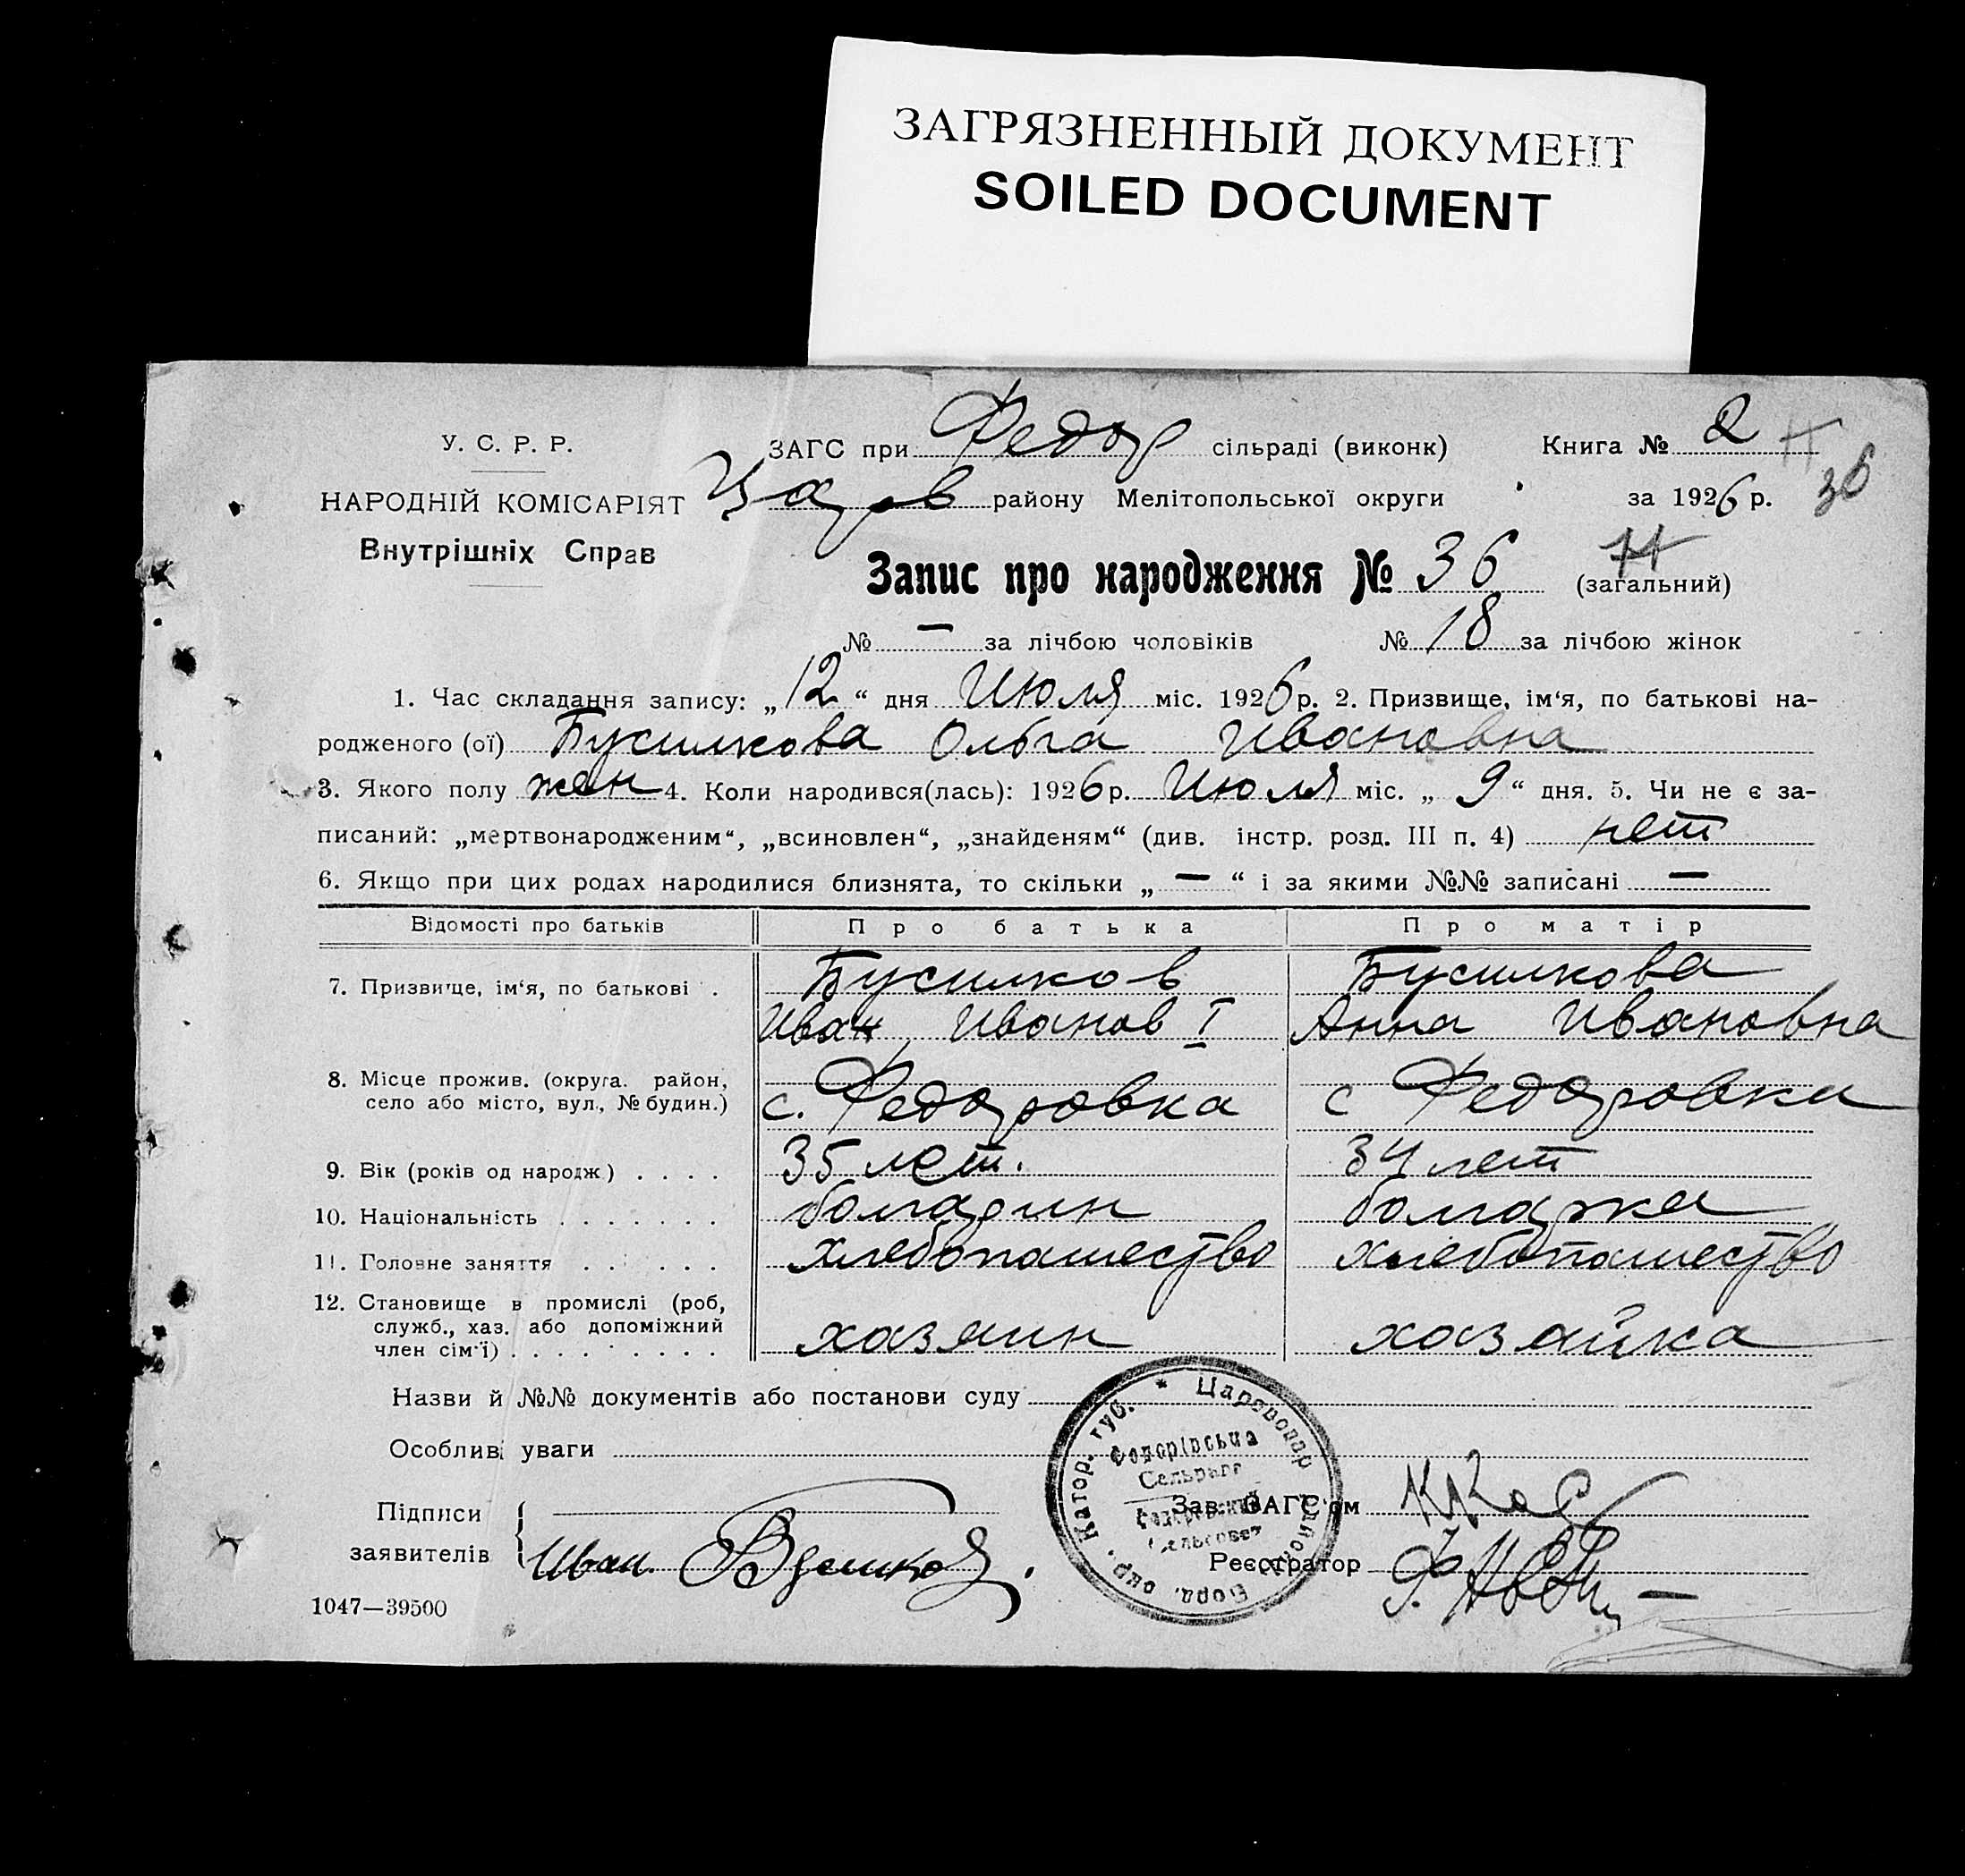 ЗАГРЯЗНЕННЫЙ ДОКУМЕНТ
SOILED DOCUMENT
У. С. Р. Р.
НАРОДНІЙ КОМІСАРІЯТ
Внутрішніх Справ
ЗАГС при Федор сільраді (виконк) Книга № 2
Царев району Мелітопольської округи за 1926 р.
36
Запис про народження № 36 (загальний)
№ — за лічбою чоловіків № 18 за лічбою жінок
1. Час складання запису: „12“ дня Июля міс. 1926 р. 2. Призвище, ім‘я, по батькові на-
родженого (ої) Бусилкова Ольга Ивановна
3. Якого полу жен 4. Коли народився(лась): 1926 р. Июля міс. „9“ дня. 5. Чи не є за-
писаний: „мертвонародженим“, „всиновлен“, „знайденям“ (див. інстр. розд. III п. 4) нет
6. Якщо при цих родах народилися близнята, то скільки „—“ і за якими №№ записані —
Відомості про батьків Про батька Про матір
7. Призвище, ім‘я, по батькові . Бусилков Бусилкова
Иван Иванов I Анна Ивановна
8. Місце прожив. (округа. район,
село або місто, вул., № будин.) с. Федоровка с Федоровка
9. Вік (років од народж) . . . . 35 лет. 34 лет
10. Національність . . . . . . . болгарин болгарка
11. Головне заняття . . . . . . хлебопашество хлебопашество
12. Становище в промислі (роб,
служб., хаз. або допоміжний
член сім‘ї) . . . . . . . . . хазяин хазяйка
Назви й №№ документів або постанови суду
Особлив уваги
Підписи
заявителів Иван
Зав. ЗАГС‘ом
Реєстратор
1047—39500
Катор. губ. * Царевонар
Федорівська
Сельрада
Сельсовет